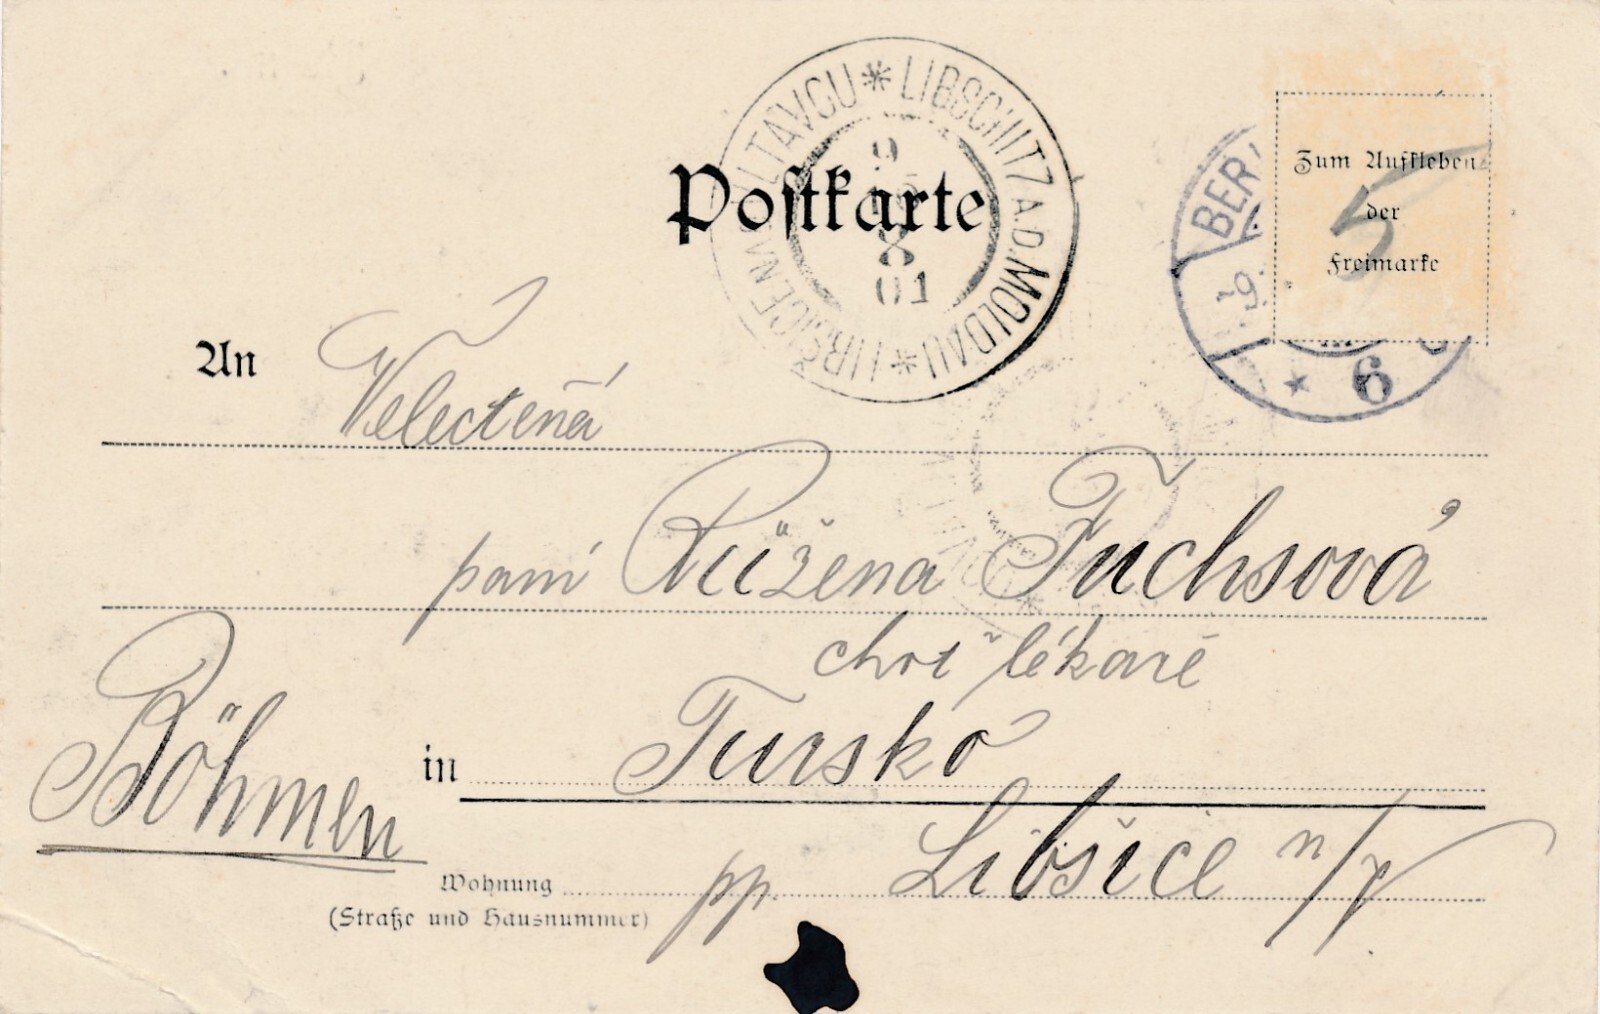 LIBSCHITZ A.D. MOLDAU * LIBŠICE NA VLTAVOU *
9
8
01
Postkarte
BER
9.
* 6
Zum Aufkleben
der
Freimarke
5
An
Velectěná
paní Růžena Fuchsová
chrt lékaře
Böhmen
in Tursko
pp. Libšice n/V
Wohnung
(Straße und Hausnummer)